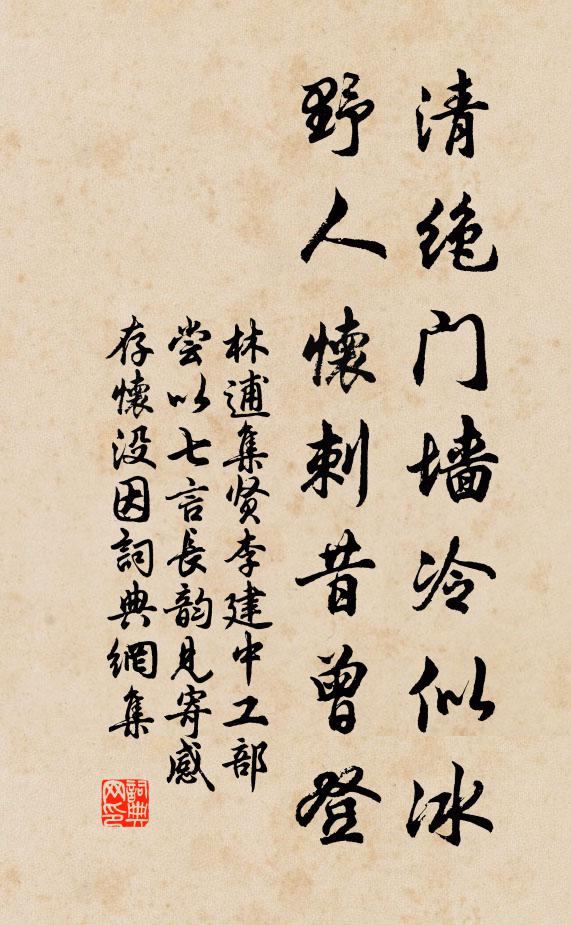 清绝门墙冷似冰
野人懷刺昔曾登
林逋集贤李建中工部
尝以七言長韵見寄感
存懷没因詞典網集
詞典网印